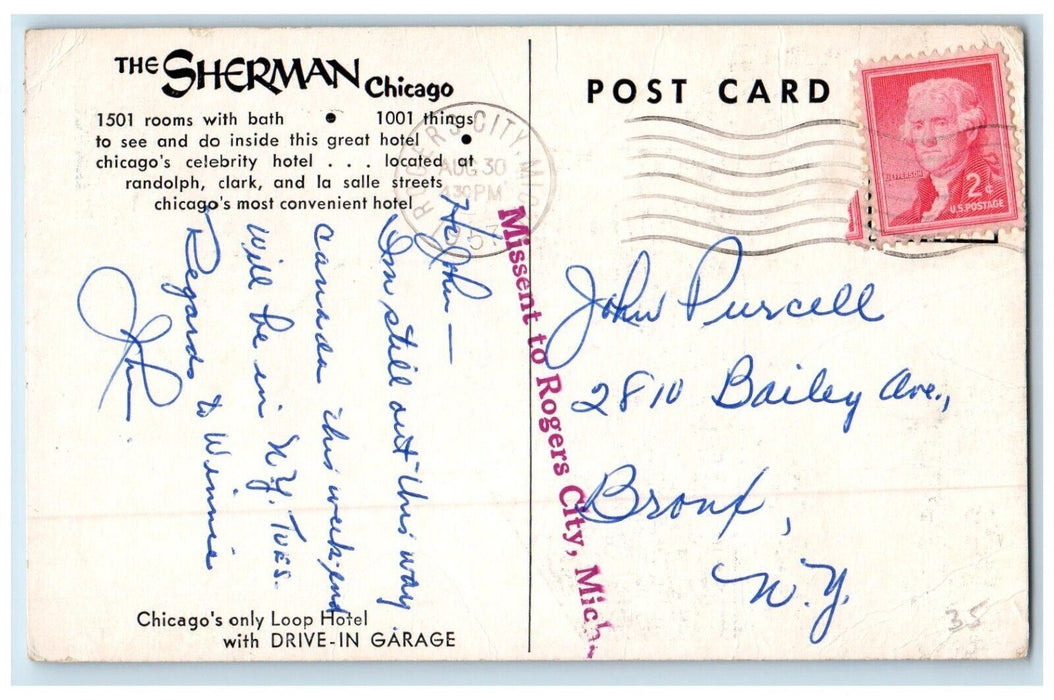 THE SHERMAN Chicago
1501 rooms with bath • 1001 things
to see and do inside this great hotel •
chicago's celebrity hotel . . . located at
randolph, clark, and la salle streets
chicago's most convenient hotel
Hi John —
I'm still out this way
Canada this week-end
will be in N.Y. Tues.
Regards to Winnie
John
Chicago's only Loop Hotel
with DRIVE-IN GARAGE
ROGERS CITY, MICH.
AUG 30
4 30 PM
1957
Missent to Rogers City, Mich.
POST CARD
JEFFERSON
2¢
U.S. POSTAGE
John Purcell
2810 Bailey Ave.,
Bronx,
N.Y.
35